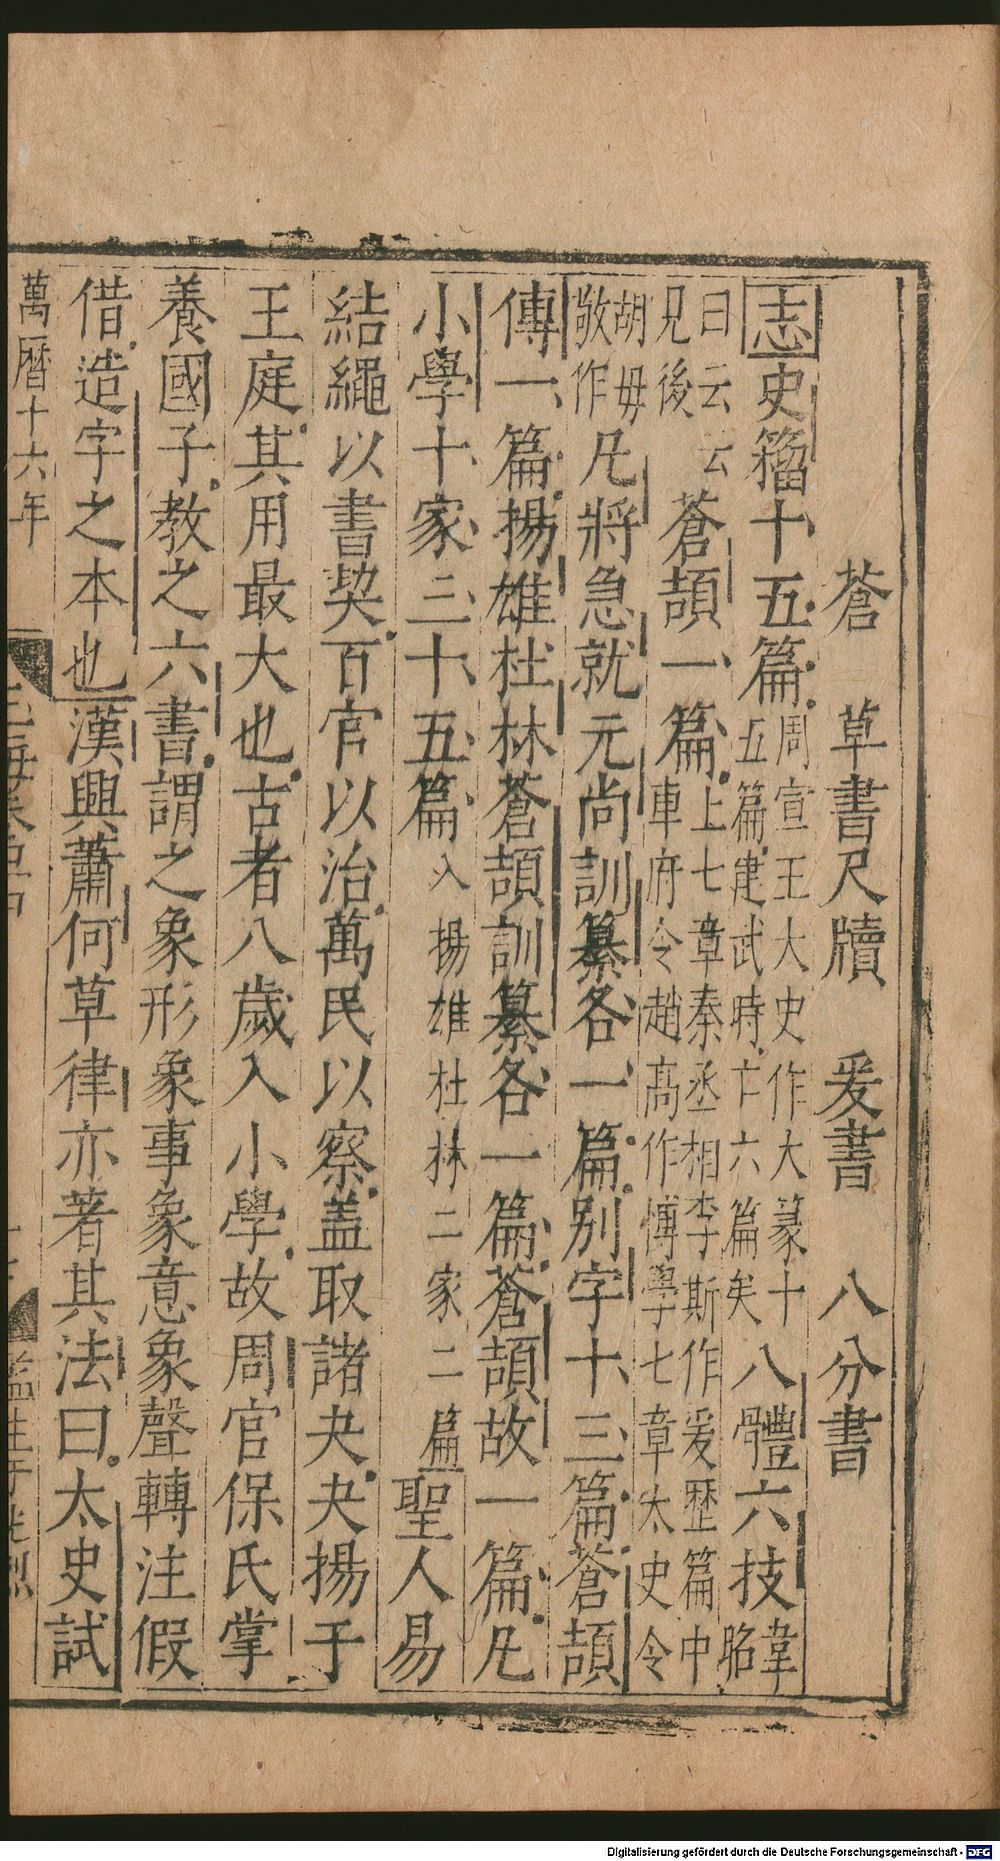 蒼 草書尺牘 爰書 八分書
志史籀十五篇周宣王大史作大篆十五篇建武時亡六篇矣八體六技韋昭
曰云云見後蒼頡一篇上七章秦丞相李斯作爰歷篇中車府令趙高作愽學七章太史令
胡毋敬作凡將急就元尚訓纂各一篇别字十三篇蒼頡
傳一篇揚雄杜林蒼頡訓纂各一篇蒼頡故一篇凡
小學十家三十五篇入揚雄杜林二家二篇聖人易
結繩以書契百官以治萬民以察盖取諸夬夬揚于
王庭其用最大也古者八歲入小學故周官保氏掌
養國子教之六書謂之象形象事象意象聲轉注假
借造字之本也漢興蕭何草律亦著其法曰太史試
萬曆十六年
Digitalisierung gefördert durch die Deutsche Forschungsgemeinschaft - DFG